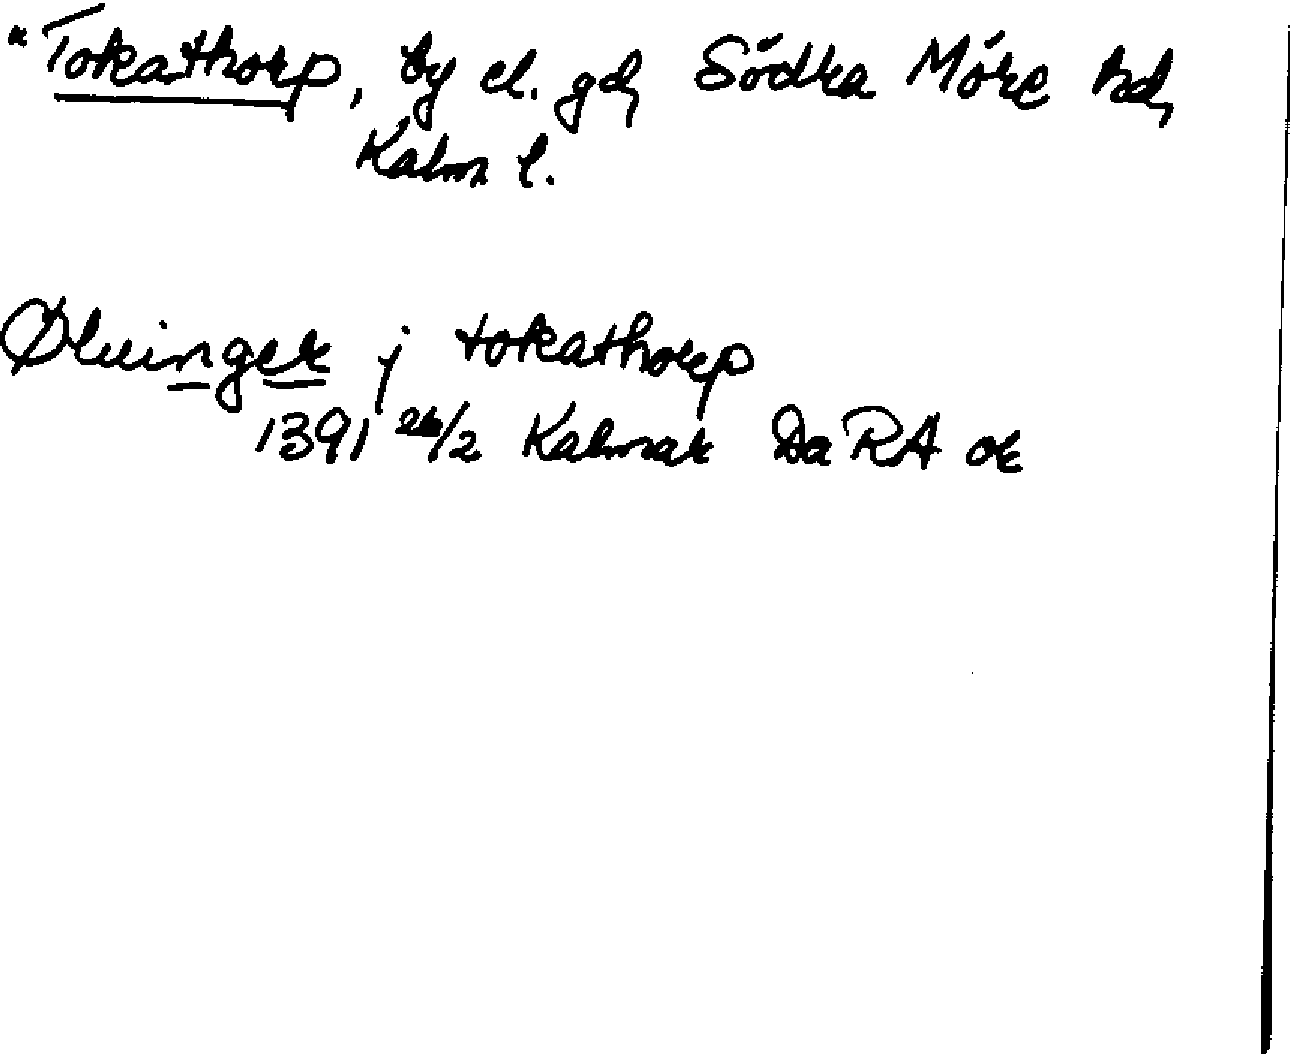 "Tokathorp, by el. gd, Södra Möre hd,
Kalm l.
Øluinger j tokathorp
1391 26/2 Kalmar Da RA or